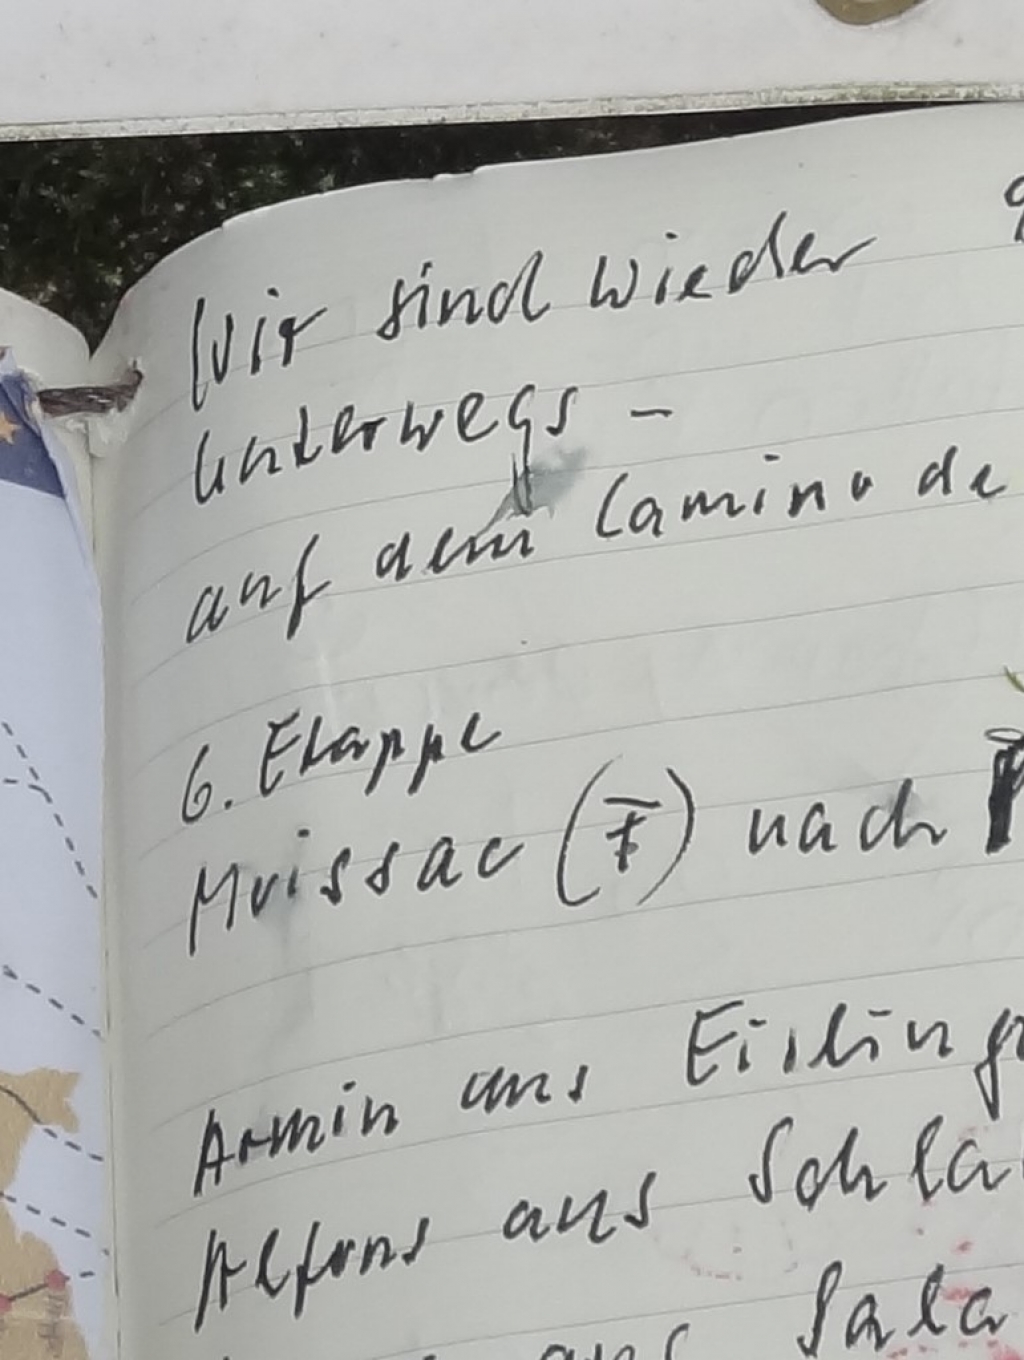 Wir sind wieder
unterwegs –
auf dem Camino de
6. Etappe
Moissac (F) nach
Armin aus Eisling
Alfons aus Schla
aus Sala